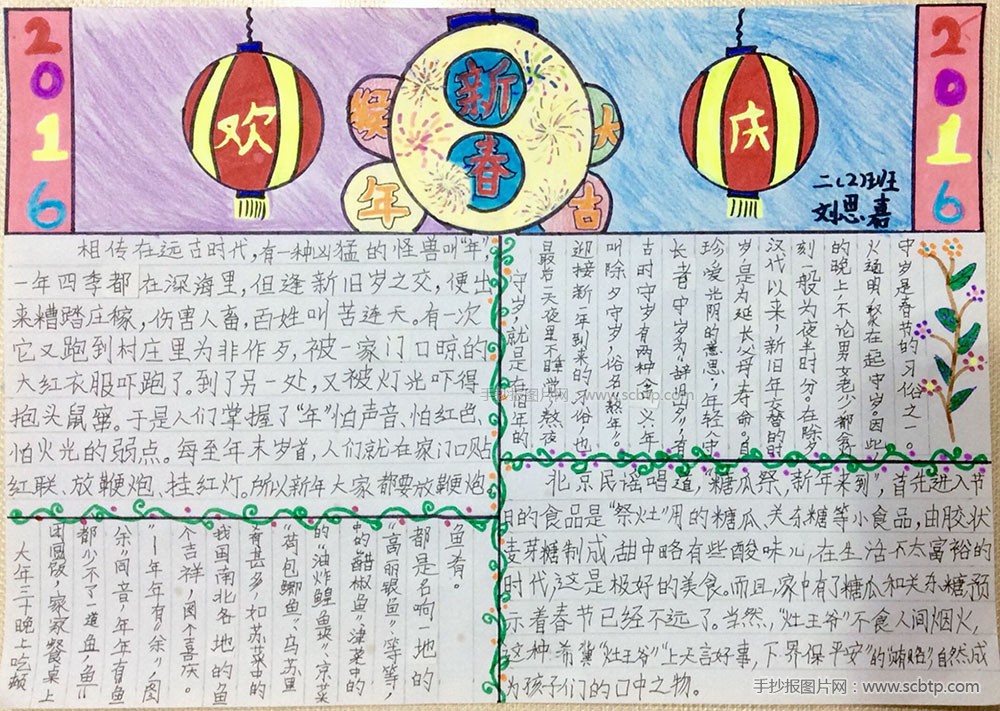 2016
欢
新春
猴年大吉
庆
2016
二(2)班
刘思嘉
相传在远古时代,有一种凶猛的怪兽叫“年”,
一年四季都在深海里,但逢新旧岁之交,便出
来糟踏庄稼,伤害人畜,百姓叫苦连天。有一次
它又跑到村庄里为非作歹,被一家门口晾的
大红衣服吓跑了。到了另一处,又被灯光吓得
抱头鼠窜。于是人们掌握了“年”怕声音、怕红色、
怕火光的弱点。每至年末岁首,人们就在家门口贴
红联、放鞭炮、挂红灯。所以新年大家都要放鞭炮
守岁,就是在旧年的
最后一天夜里不睡觉,熬夜
迎接新一年到来的习俗,也
叫除夕守岁,俗名“熬年”。
古时守岁有两种含义:年
长者守岁为“辞旧岁”,有
珍爱光阴的意思;年轻人守
岁,是为延长父母寿命。自
汉代以来,新旧年交替的时
刻一般为夜半时分。在除夕
的晚上,不论男女老少都会
火通明,聚在一起守岁。因此,
守岁是春节的习俗之一。
大年三十晚上吃顿
团圆饭,家家餐桌上
都少不了一道鱼,“鱼”
“余”同音,年年有鱼
——年年有“余”,图
个吉祥,图个喜庆。
我国南北各地的鱼
有甚多,如苏菜中的
“荷包鲫鱼”、乌苏里
的“油炸鳇鱼”、京菜
中的“醋椒鱼”、津菜中的
“高丽银鱼”等等,
都是名响一地的
鱼肴。
北京民谣唱道,“糖瓜祭,新年来到”,首先进入节
日的食品是“祭灶”用的糖瓜、关东糖等小食品,由胶状
麦芽糖制成,甜中略有些酸味儿,在生活不太富裕的
时代,这是极好的美食。而且,家中有了糖瓜和关东糖,预
示着春节已经不远了。当然,“灶王爷”不食人间烟火,
这种希冀“灶王爷”“上天言好事,下界保平安”的“贿赂”,自然成
为孩子们的口中之物。
手抄报图片网 www.scbtp.com
手抄报图片网:www.scbtp.com